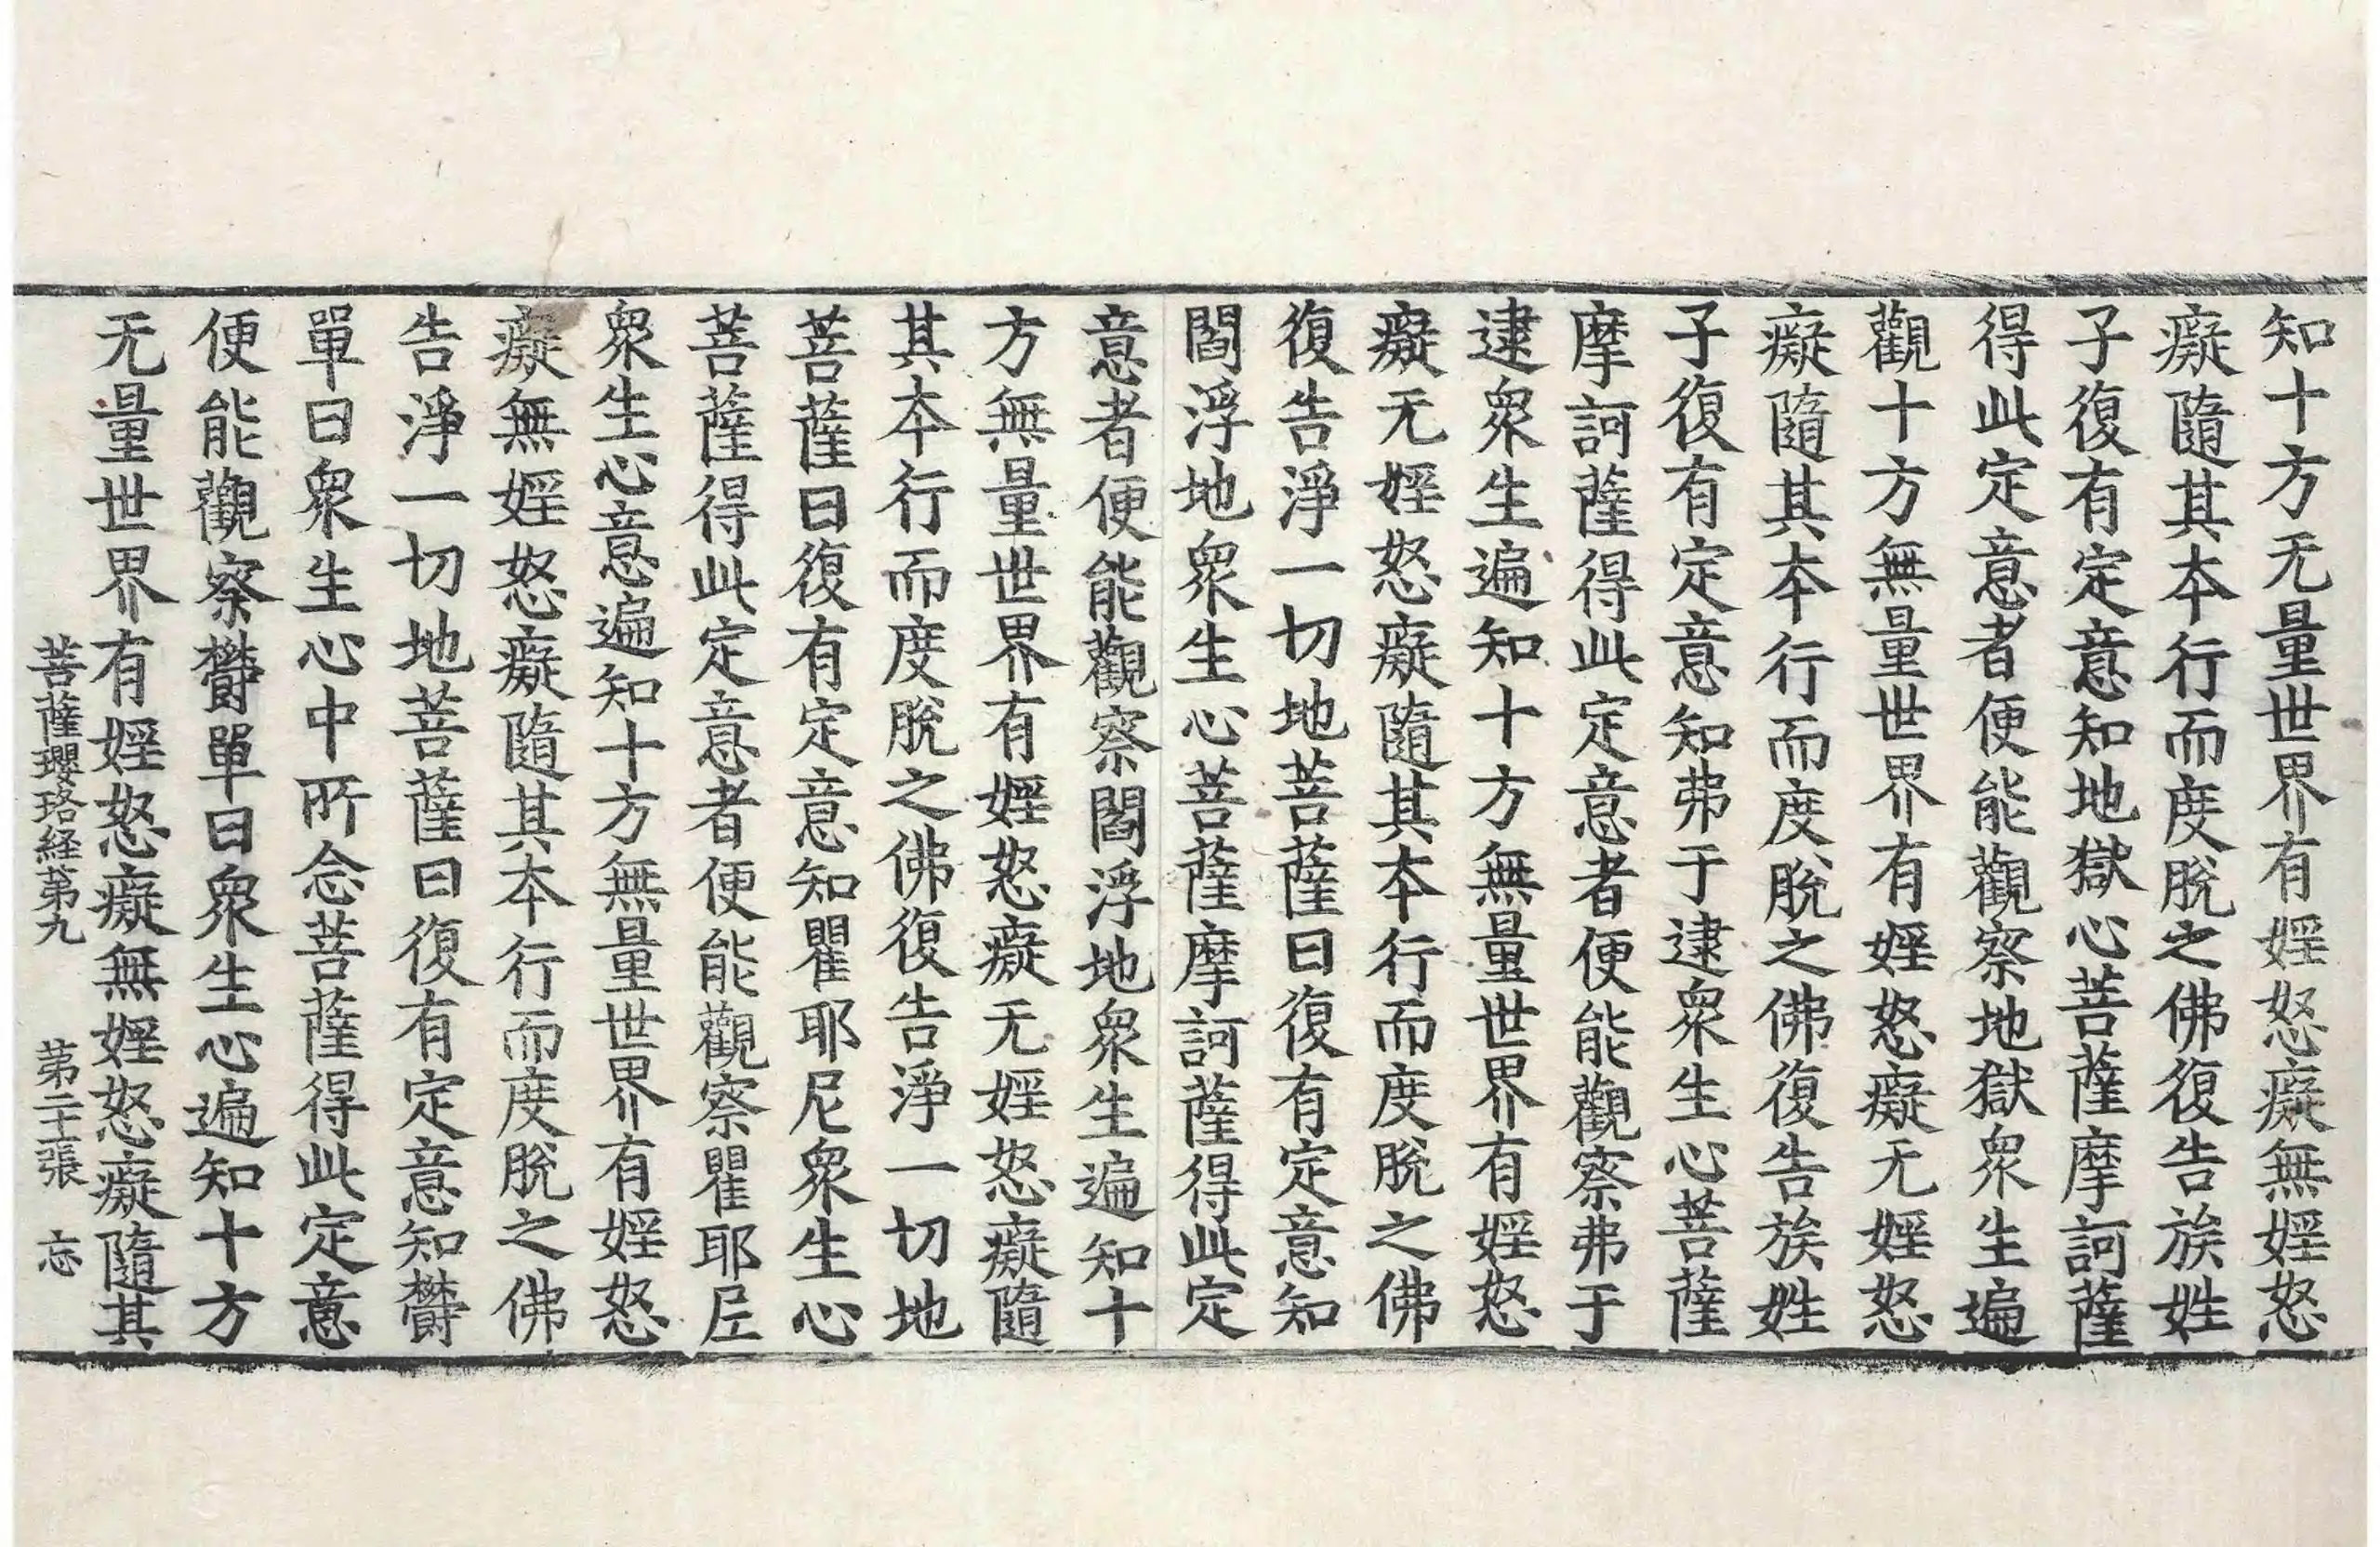 知十方无量世界有婬怒癡無婬怒
癡隨其本行而度脫之佛復告族姓
子復有定意知地獄心菩薩摩訶薩
得此定意者便能觀察地獄衆生遍
觀十方無量世界有婬怒癡无婬怒
癡隨其本行而度脫之佛復告族姓
子復有定意知弗于逮衆生心菩薩
摩訶薩得此定意者便能觀察弗于
逮衆生遍知十方無量世界有婬怒
癡无婬怒癡隨其本行而度脫之佛
復告淨一切地菩薩曰復有定意知
閻浮地衆生心菩薩摩訶薩得此定
意者便能觀察閻浮地衆生遍知十
方無量世界有婬怒癡无婬怒癡隨
其本行而度脫之佛復告淨一切地
菩薩曰復有定意知瞿耶尼衆生心
菩薩得此定意者便能觀察瞿耶尼
衆生心意遍知十方無量世界有婬怒
癡無婬怒癡隨其本行而度脫之佛
告淨一切地菩薩曰復有定意知欝
單曰衆生心中所念菩薩得此定意
便能觀察欝單曰衆生心遍知十方
无量世界有婬怒癡無婬怒癡隨其
菩薩瓔珞経第九 第二十張 忘